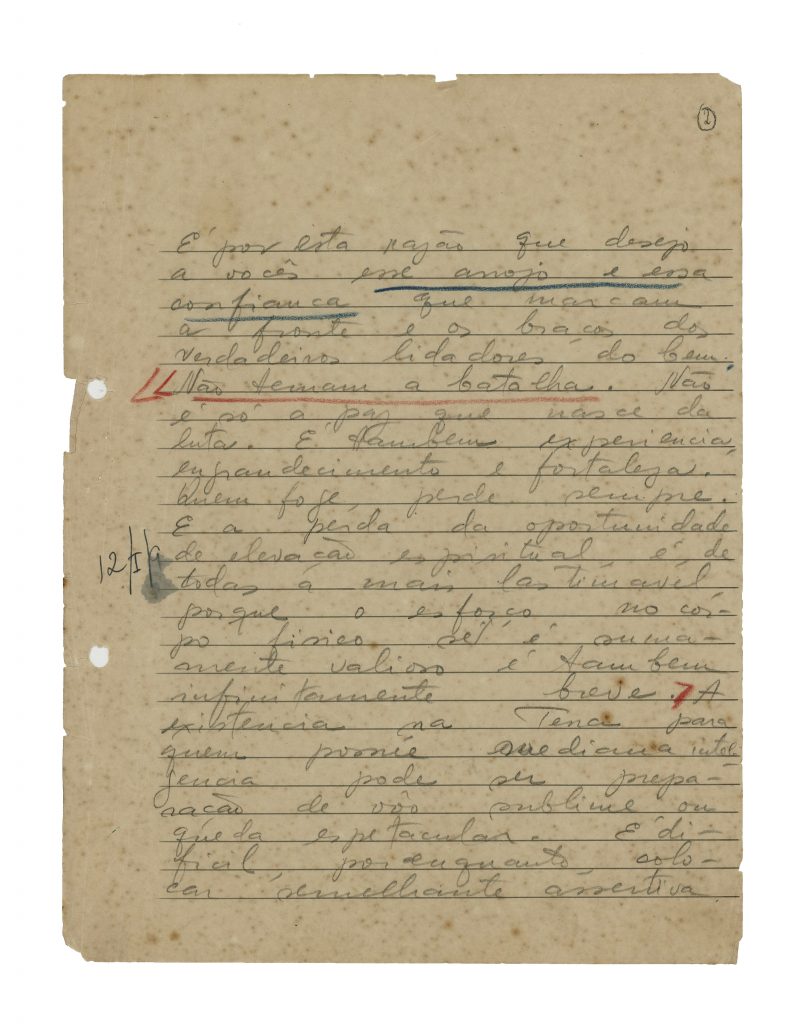 2
É por esta razão que desejo
a vocês esse arrojo e essa
confiança que marcam
a fronte e os braços dos
verdadeiros lidadores do bem.
Não temam a batalha. Não
é só a paz que nasce da
luta. É tambem experiencia,
engrandecimento e fortaleza.
Quem foge, perde sempre.
E a perda da oportunidade
de elevação espiritual é de
12/I/9
todas a mais lastimavel,
porque o esforço no cor-
po fisico se é suma-
mente valioso é tambem
infinitamente breve. A
existencia na Terra para
quem possúe mediana inteli-
gencia pode ser prepa-
ração de vôo sublime ou
queda espetacular. É di-
ficil, por enquanto, colo-
car semelhante assertiva